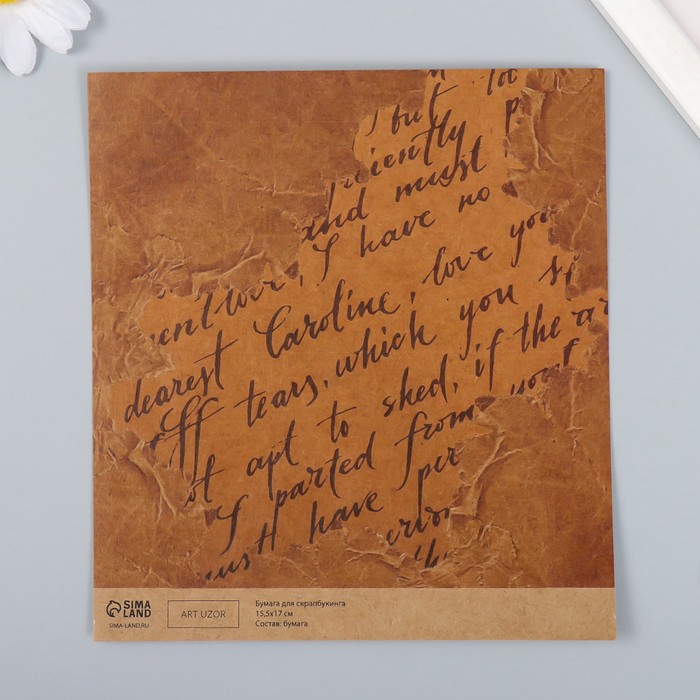 but too
iciently p
and must
I have no
ent love,
dearest Caroline, love you
off tears, which you s
ot apt to shed, if the
I parted from
ust have per
SIMA LAND
SIMA-LAND.RU
ART UZOR
Бумага для скрапбукинга
15,5x17 см
Состав: бумага